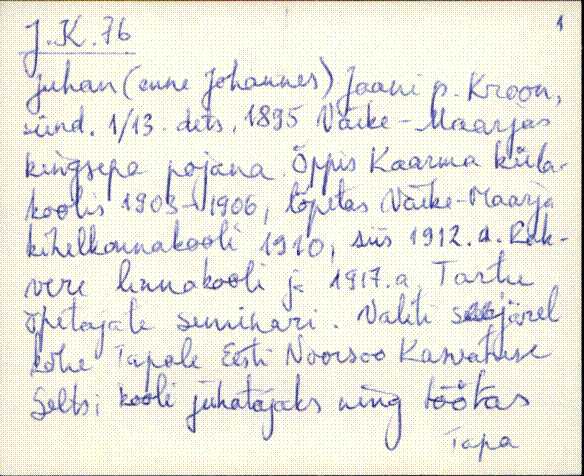 1
J.K.76
Juhan (enne Johannes) Jaani p. Kröön,
sünd. 1/13. dets. 1895 Väike-Maarjas
kingsepa pojana. Õppis Kaarma küla-
koolis 1903-1906, lõpetas Väike-Maarja
kihelkonnakooli 1910, siis 1912.a. Rak-
vere linnakooli ja 1917.a. Tartu
õpetajate seminari. Valiti seejärel
kohe Tapale Eesti Noorsoo Kasvatuse
Seltsi kooli juhatajaks ning töötas
Tapa